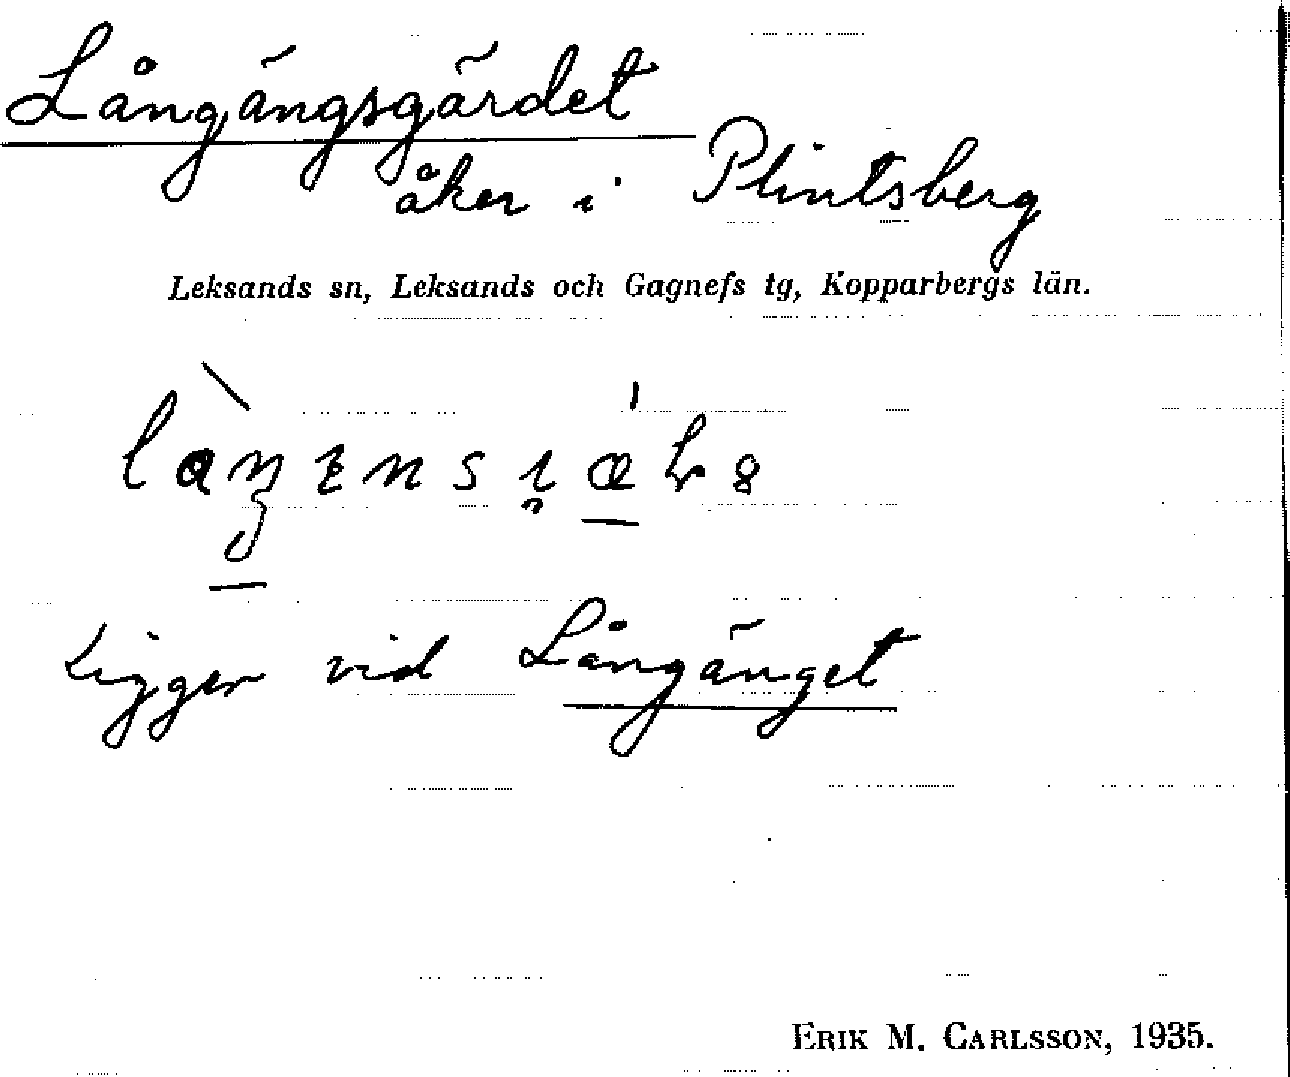 Långängsgärdet
åker i Plintsberg
Leksands sn, Leksands och Gagnefs tg, Kopparbergs län.
Ligger vid Långänget
ERIK M. CARLSSON, 1935.